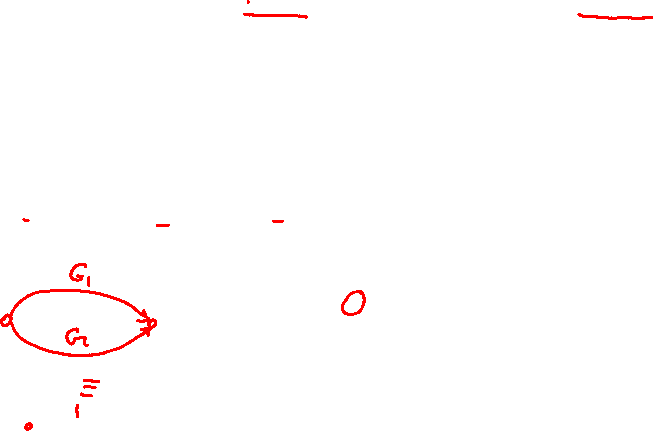 G1
G2
≡